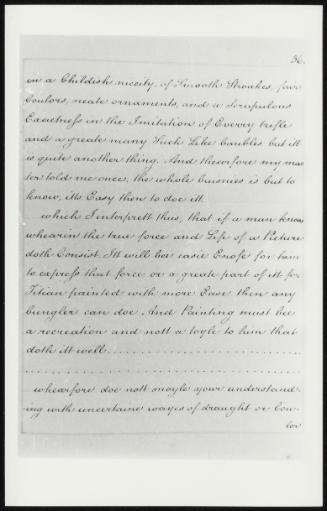 36.
in a Childish niceity, of Smooth Stroakes, fair
Coulors, neate ornaments, and a Scrupulous
Exactness in the Imitation of Every trifle
and a greate many Such Like baubles but itt
is quite another thing. And therefore my mas
ter told me once, the whole buisnies is but to
know, itts Easy then to doe itt.
which I interprett thus, that if a man knows
whearin the true force and Life of a Picture
doth Consist, Itt will bee easie Enofe for him
to express that force or a greate part of itt for
Titian painted with more Ease then any
bungler can doe. And Painting must bee
a recreation and nott a toyle to him that
doth itt well
whearfore doe nott moyle your understand-
ing with uncertaine wayes of draught or Cou-
lor